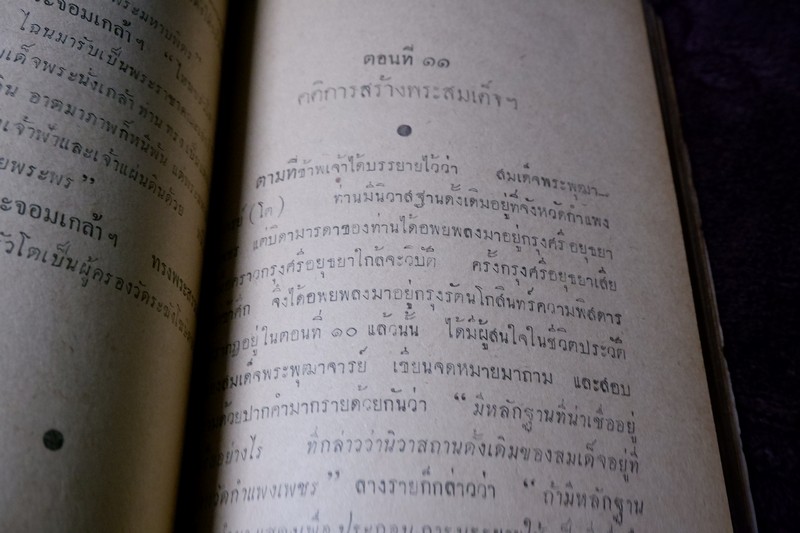 ระมหาบพิตร”
ะจอมเกล้าฯ
ไฉนมารับเป็นพระราชาคณะ
เด็จพระนั่งเกล้า ท่านทรงเป็น
อาตมาภาพก็หนีพ้น แต่พระ
เจ้าฟ้าและเจ้าแผ่นดินด้วย
ยพระพร”
ะจอมเกล้าฯ ทรงพระส
รัวโตเป็นผู้ครองวัดระฆังโฆ
ตอนที่ ๑๑
คติการสร้างพระสมเด็จฯ
ตามที่ข้าพเจ้าได้บรรยายไว้ว่า สมเด็จพระพุฒา–
(โต) ท่านมีนิวาสฐานดั้งเดิมอยู่ที่จังหวัดกำแพง
แต่บิดามารดาของท่านได้อพยพลงมาอยู่กรุงศรีอยุธยา
คราวกรุงศรีอยุธยาใกล้จะวิบัติ ครั้งกรุงศรีอยุธยาเสีย
จึงได้อพยพลงมาอยู่กรุงรัตนโกสินทร์ความพิสดาร
อยู่ในตอนที่ ๑๐ แล้วนั้น ได้มีผู้สนใจในชีวิตประวัติ
สมเด็จพระพุฒาจารย์ เขียนจดหมายมาถาม และสอบ
ด้วยปากคำมากรายด้วยกันว่า “มีหลักฐานที่น่าเชื่ออยู่
อย่างไร ที่กล่าวว่านิวาสถานดั้งเดิมของสมเด็จอยู่ที่
วัดกำแพงเพชร” ลางรายก็กล่าวว่า “ถ้ามีหลักฐาน